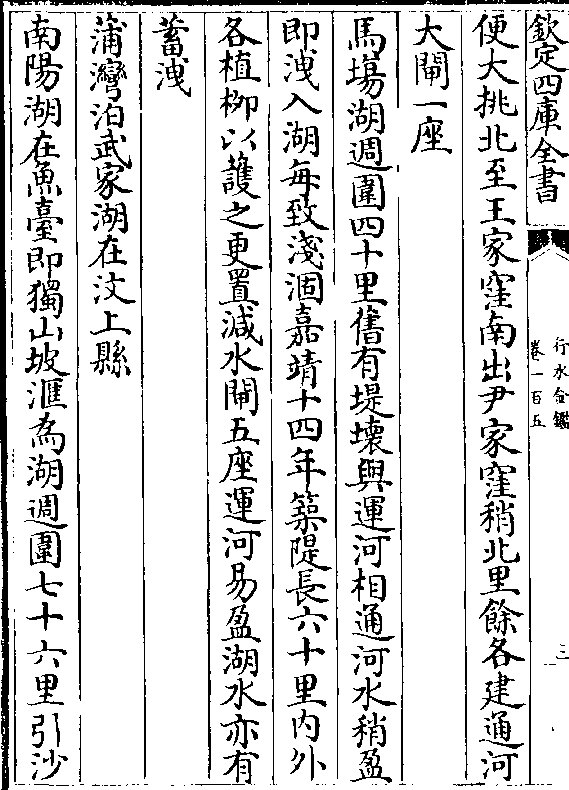 欽定四庫全書
行水金鑑
卷一百五
三
便大挑北至王家窪南出尹家窪稍北里餘各建通河
大閘一座
馬塲湖週圍四十里舊有堤壞與運河相通河水稍盈
即洩入湖每致淺涸嘉靖十四年築隄長六十里內外
各植柳以護之更置減水閘五座運河易盈湖水亦有
蓄洩
蒲灣泊武家湖在汶上縣
南陽湖在魚臺即獨山坡滙為湖週圍七十六里引沙